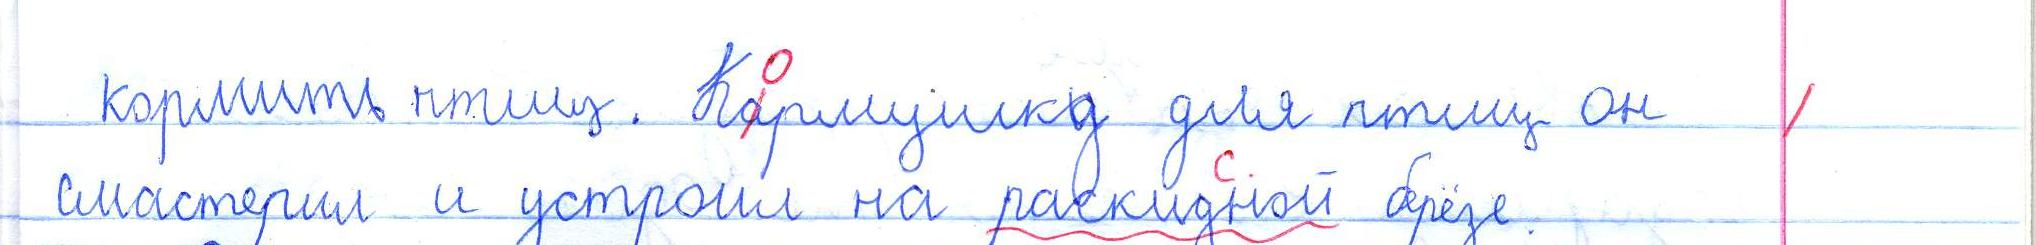 кормить птиц. Кармушку для птиц он
смастерил и устроил на раскидной берёзе.